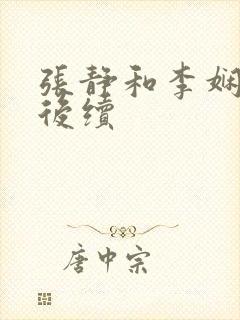 張静和李娴
後續
唐中宗